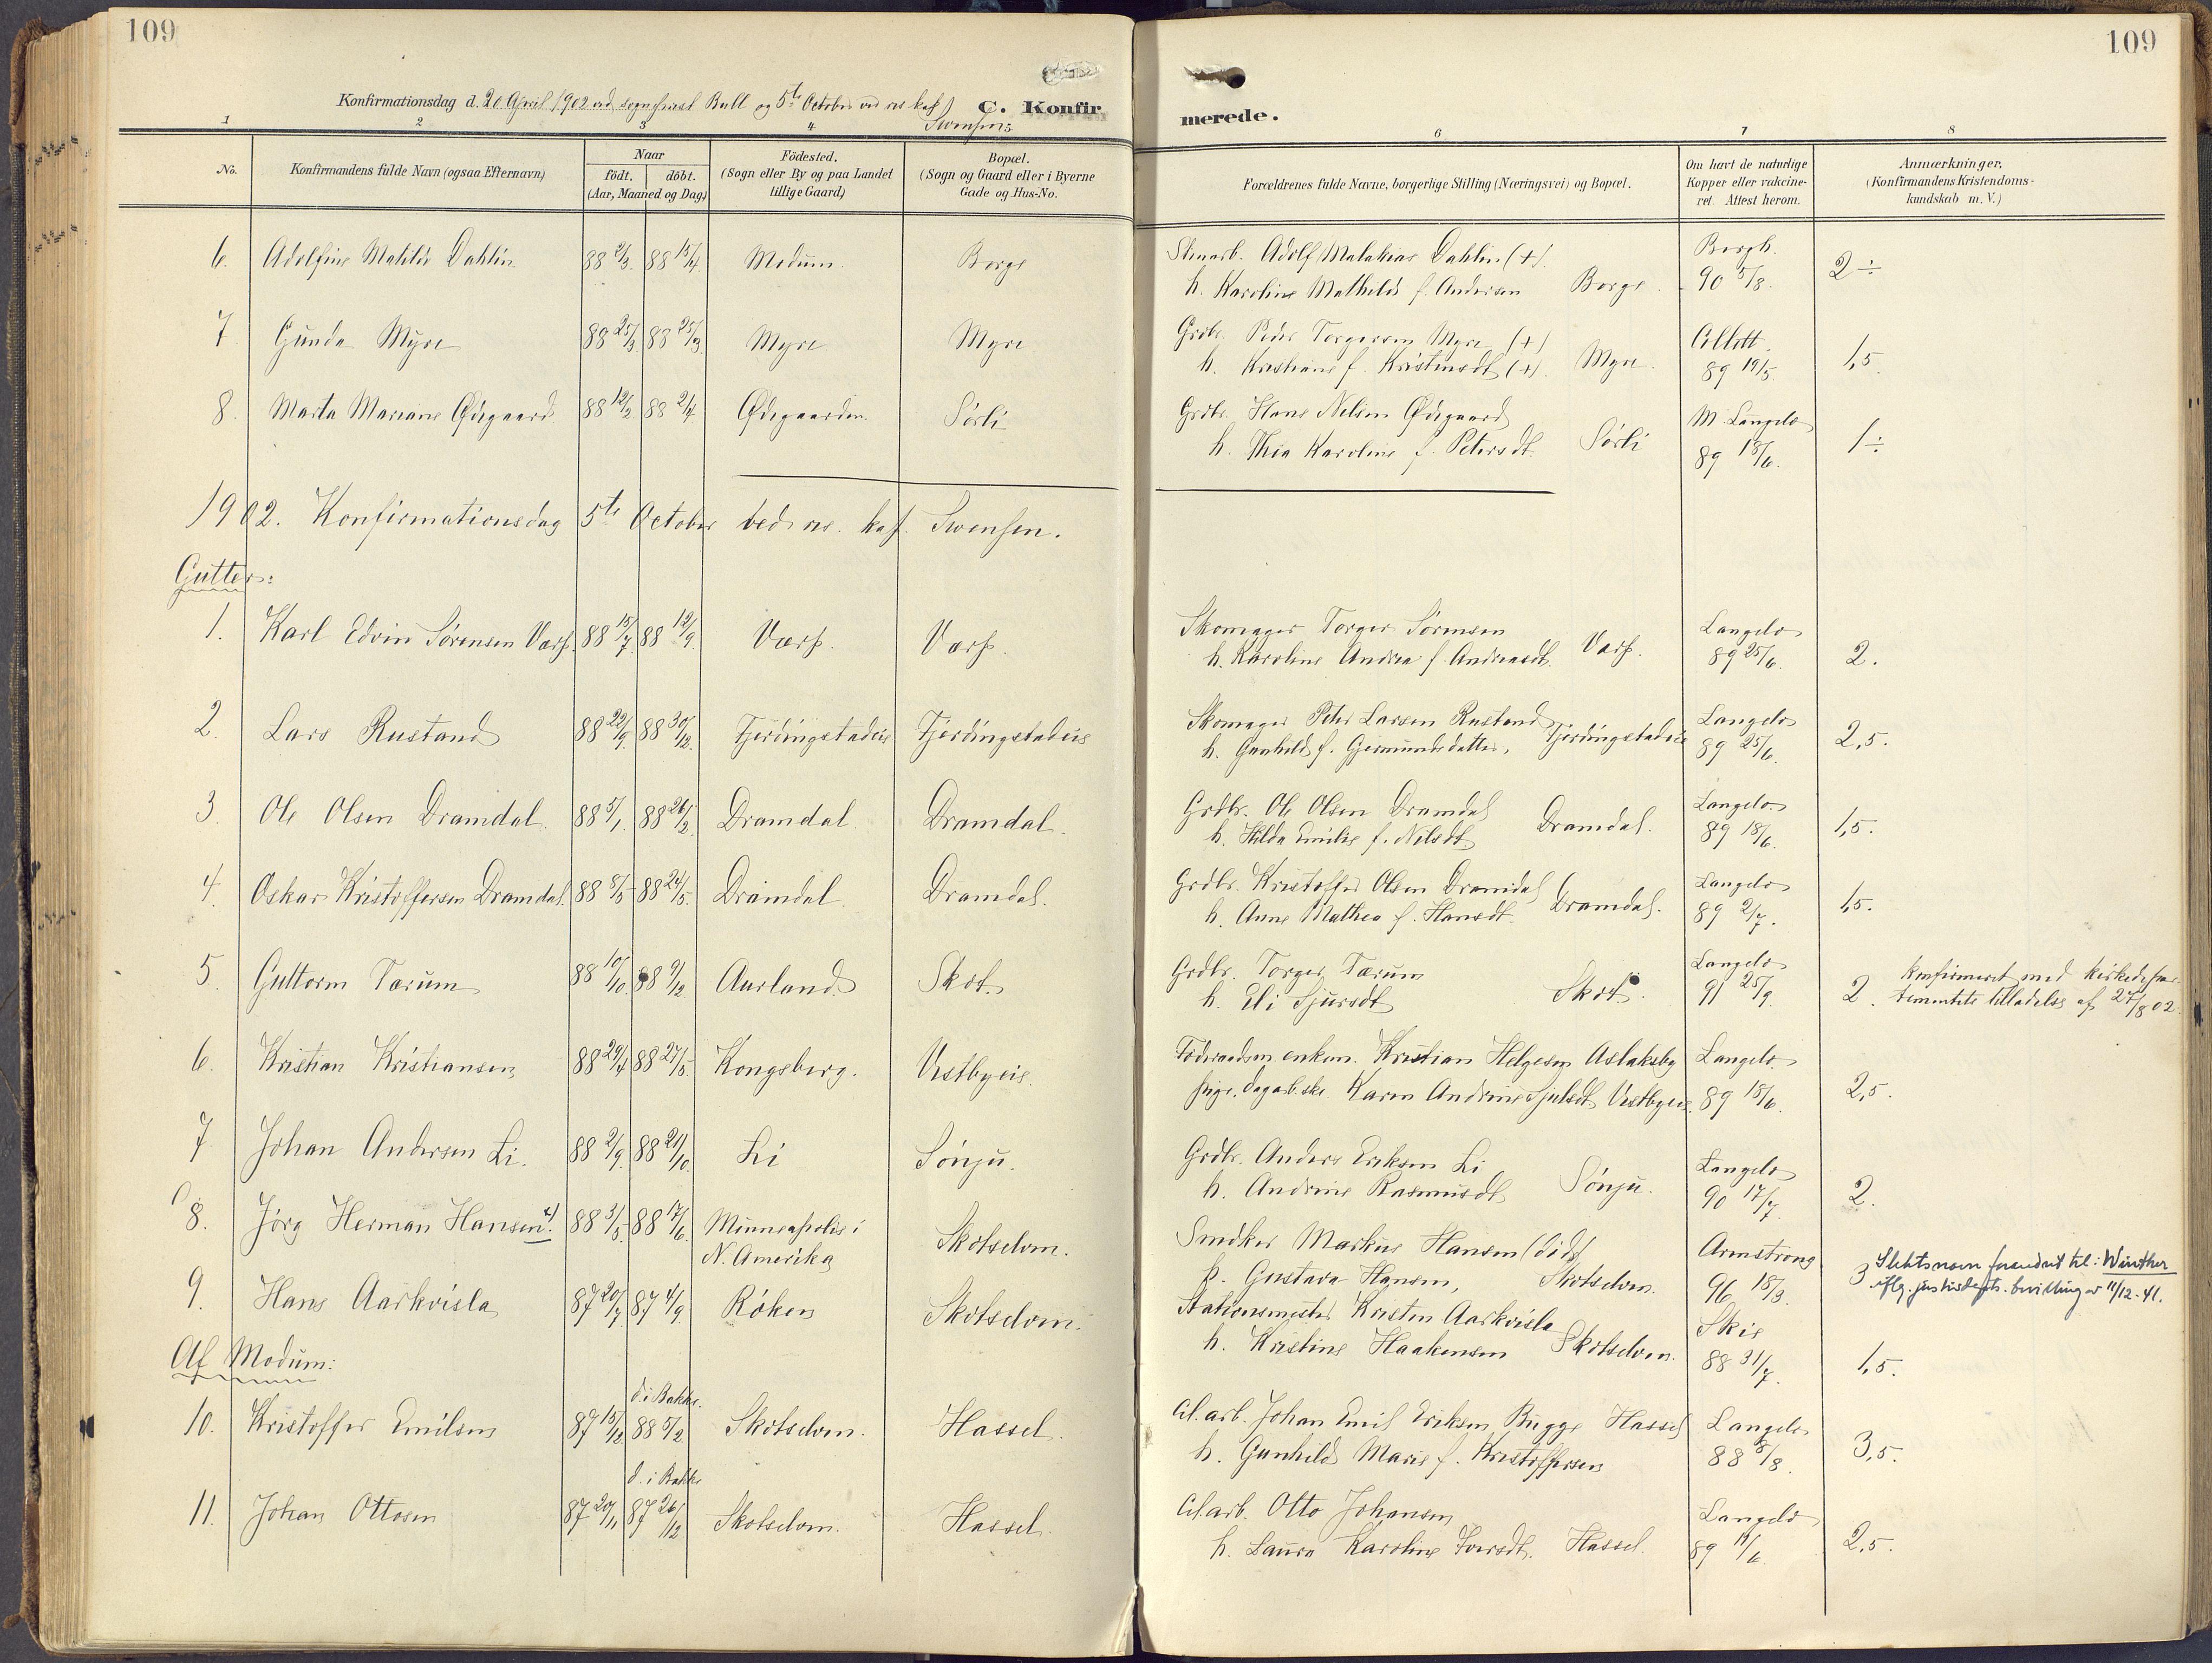 109
109
Konfirmationsdag d. 20 April 1902 ved sogneprest Bull og 5te October ved res kap
Svensen
C. Konfir
merede.
1 2 3 4
6 7 8
No.
Konfirmandens fulde Navn (ogsaa Efternavn)
Naar
födt. döbt.
(Aar, Maaned og Dag)
Födested.
(Sogn eller By og paa Landet
tillige Gaard)
Bopæl.
(Sogn og Gaard eller i Byerne
Gade og Hus-No.
Forældrenes fulde Navne, borgerlige Stilling (Næringsvei) og Bopæl.
Om havt de naturlige
Kopper eller vakcine-
ret. Attest herom.
Anmærkninger,
(Konfirmandens Kristendoms-
kundskab m. V.)
6. Adolfine Matilde Dahlin 88 2/3. 88 15/4. Modum. Borge
Adolf Malakias Dahlin (+).
h. Karoline Mathilde f. Andersen Borge.
Borgh.
90 5/8.
2÷
7 Gunda Myre 88 25/3 88 25/3. Myre Myre
Grdbr. Peder Torgersen Myre (+)
h. Kristiane f. Kristensdt (+). Myre.
Collett.
89 19/5.
1,5.
8. Marta Mariane Ødegaard 88 12/2 88 2/4. Ødegaarden. Sørli
Grdbr. Hans Nilsen Ødegaard
h. Thea Karoline f. Petersdt. Sørli
M. Langelo
89 18/6.
1÷
1902. Konfirmationsdag 5te October ved res. kap. Svensen.
Gutter:
1. Karl Edvin Sørensen Varp. 88 15/7. 88 12/9. Varp. Varp.
Skomager Torger Sørensen
h. Karoline Andrea f. Andreasdt. Varp.
Langelo
89 25/6.
2.
2. Lars Rustand 88 22/9. 88 30/12. Fjerdingstadeie Fjerdingstadeie
Skomager Peder Larsen Rustand
h. Gunhild f. Gjermundsdatter, Fjerdingstadeie
Langelo
89 25/6.
2,5.
3. Ole Olsen Dramdal. 88 5/1. 88 26/2. Dramdal. Dramdal.
Grdbr. Ole Olsen Dramdal
h. Hilda Emilie f. Nilsdt. Dramdal.
Langelo
89 18/6.
1,5.
4. Oskar Kristoffersen Dramdal. 88 8/5 88 24/5. Dramdal. Dramdal.
Grdbr. Kristoffer Olsen Dramdal
h. Anne Mathea f. Hansdt. Dramdal.
Langelo
89 2/7.
1,5.
5. Guttorm Tærum 88 10/10. 88 9/12 Aurland. Skot.
Grdbr. Torger Tærum
h. Eli Sjursdt Skot.
Langelo
91 25/9.
2. Konfirmeret med kirkedepar-
tementets tilladelse af 27/8 02.
6. Kristian Kristiansen 88 29/4 88 27/5. Kongsberg. Vestbyeie.
Føderaadsm. enkem. Kristian Helgesen Aslaksby
pige. dagarb.ske. Karen Andrine Sjulsdt Vestbyeie.
Langelo.
89 18/6.
2,5.
7 Johan Andersen Li. 88 2/9. 88 21/10. Li Sønju.
Grdbr. Anders Eriksen Li
h. Andrine Rasmusdt. Sønju.
Langelo
90 17/7.
2.
8. Jørg Herman Hansen x). 88 3/5 88 17/6. Minneapolis i
N. Amerika Skotselven.
Snedker Markus Hansen (død)
h. Gustava Hansen, Skotselven.
Armstrong
96 18/3.
3 Slektsnavn forandret til: Winther
iflg. justisdepts. bevilling av 11/12-41.
9. Hans Aarkvisla 87 20/7. 87 4/9. Røken Skotselven.
Stationsmester Kristen Aarkvisla
h. Kristine Haakensen Skotselven.
Skie
88 31/7.
1,5.
Af Modum:
d. i Bakke.
10. Kristoffer Emilsen 87 15/12 88 5/2. Skotselven. Hassel.
Cel.arb. Johan Emil Eriksen Bugge Hassel
h. Gunhild Marie f. Kristoffersen
Langelo
88 8/8.
3,5.
d. i Bakke
11. Johan Ottosen 87 20/11 87 26/12 Skotselven. Hassel.
Cel.arb. Otto Johansen
h. Laura Karoline Iversdt. Hassel.
Langelo
89 11/6
2,5.